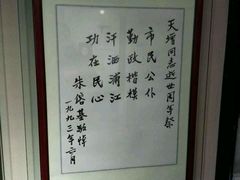 天增同志逝世周年祭
市民公仆
勤政楷模
汗洒浦江
功在民心
朱镕基敬悼
一九九三年六月